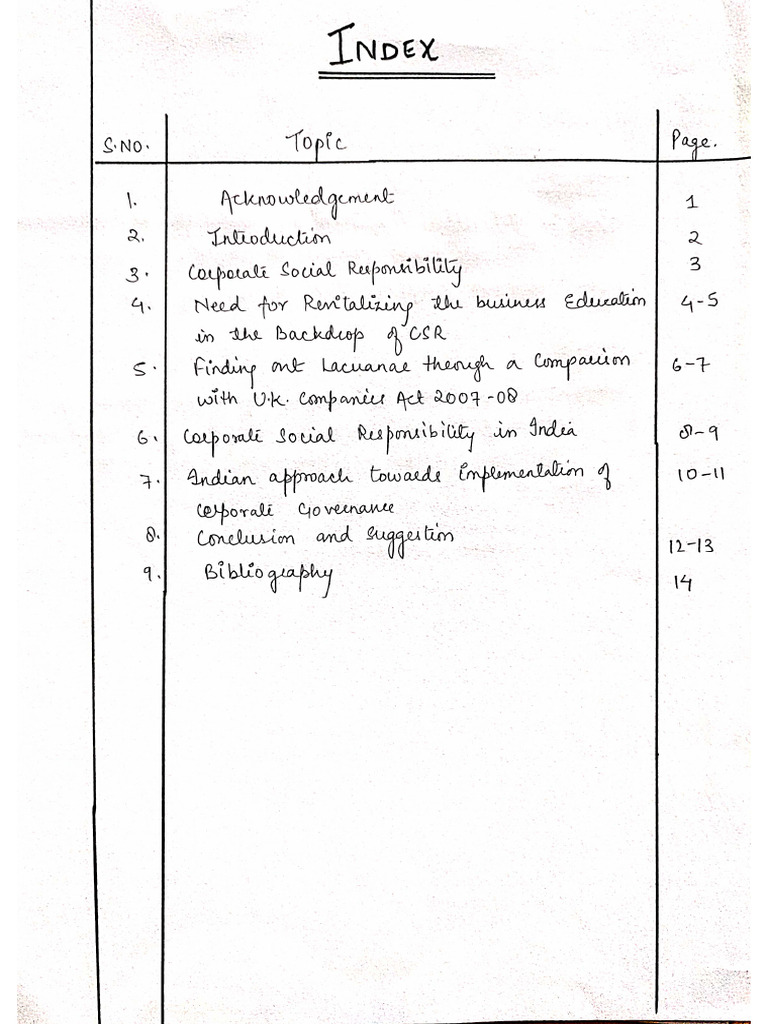 INDEX
S.NO. Topic Page.
1. Acknowledgement 1
2. Introduction 2
3. Corporate Social Responsibility 3
4. Need for Revitalizing the business Education 4-5
in the Backdrop of CSR
5. Finding out Lacuanae through a Comparision 6-7
with U.K. Companies Act 2007-08
6. Corporate Social Responsibility in India 8-9
7. Indian approach towards Implementation of 10-11
Corporate Governance
8. Conclusion and Suggestion 12-13
9. Bibliography 14